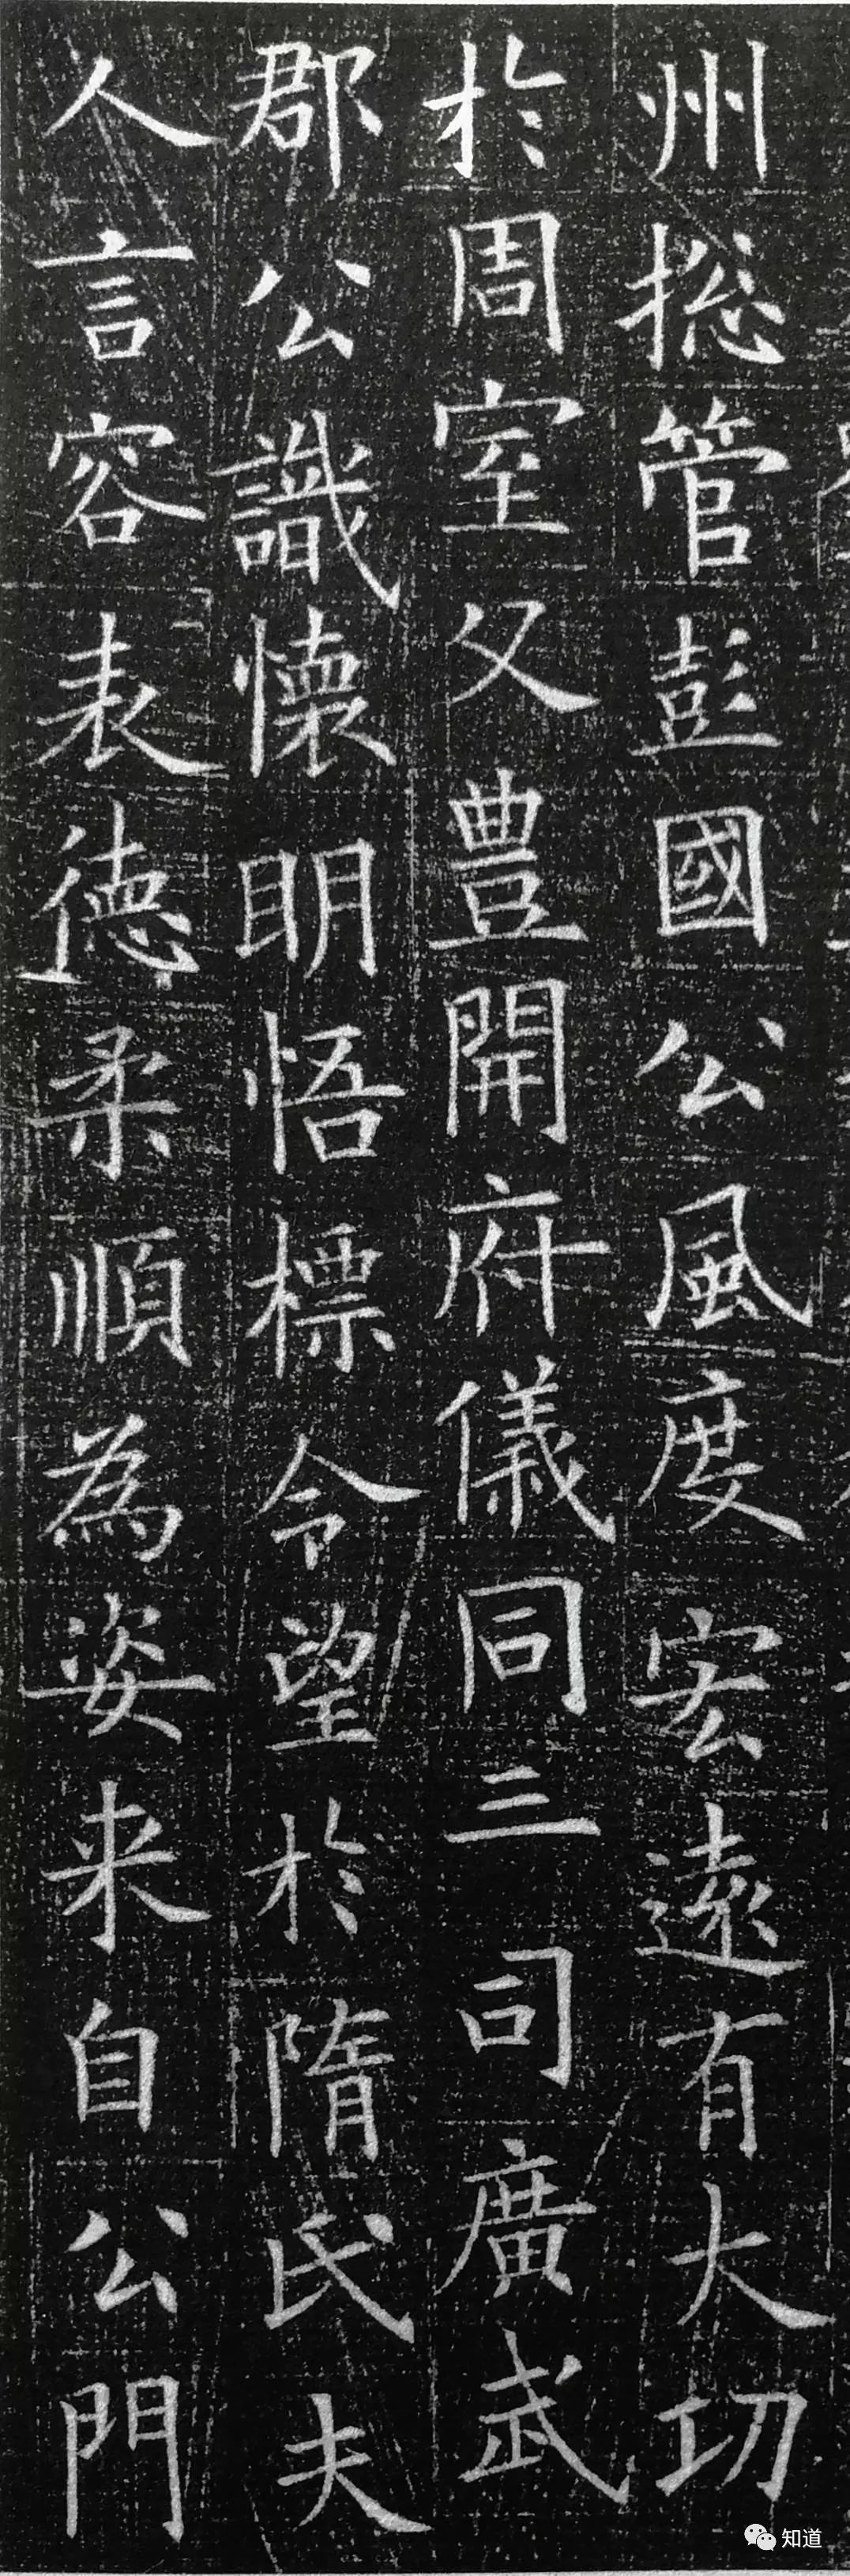 州揔管彭國公風度宏遠有大功
於周室父豊開府儀同三司廣武
郡公識懷明悟標令望於隋氏夫
人言容表德柔順為姿来自公門
知道